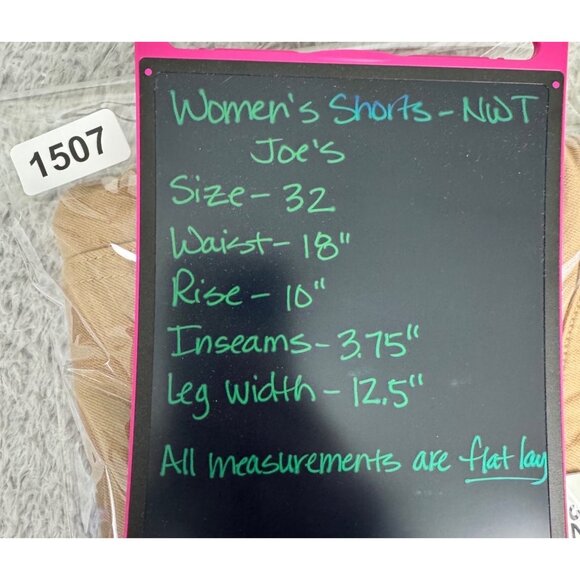 1507
Women's Shorts - NWT
Joe's
Size - 32
Waist - 18"
Rise - 10"
Inseams - 3.75"
Leg width - 12.5"
All measurements are flat lay